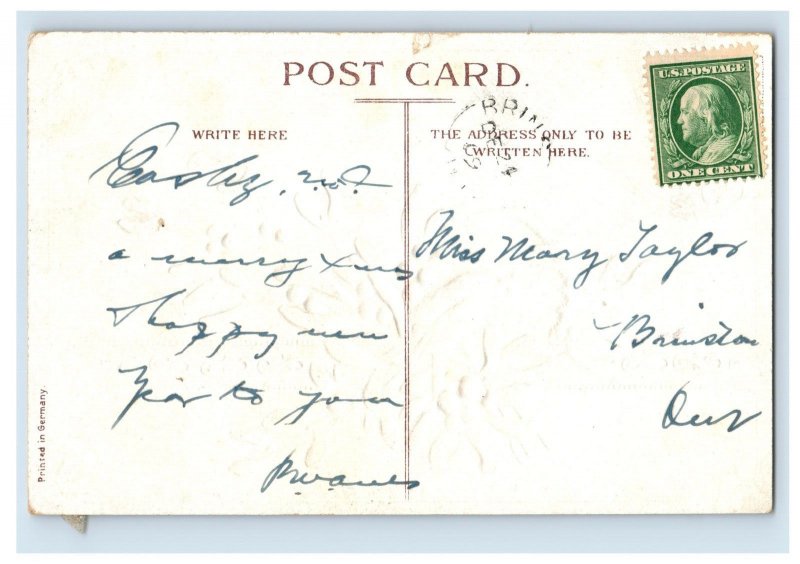 POST CARD.
WRITE HERE
THE ADDRESS ONLY TO BE
WRITTEN HERE.
U.S. POSTAGE
ONE CENT
BRINS
DE 24
09
a merry xmas
& happy new
Year to you
Miss Mary Taylor
Brinston
Ont
Printed in Germany.